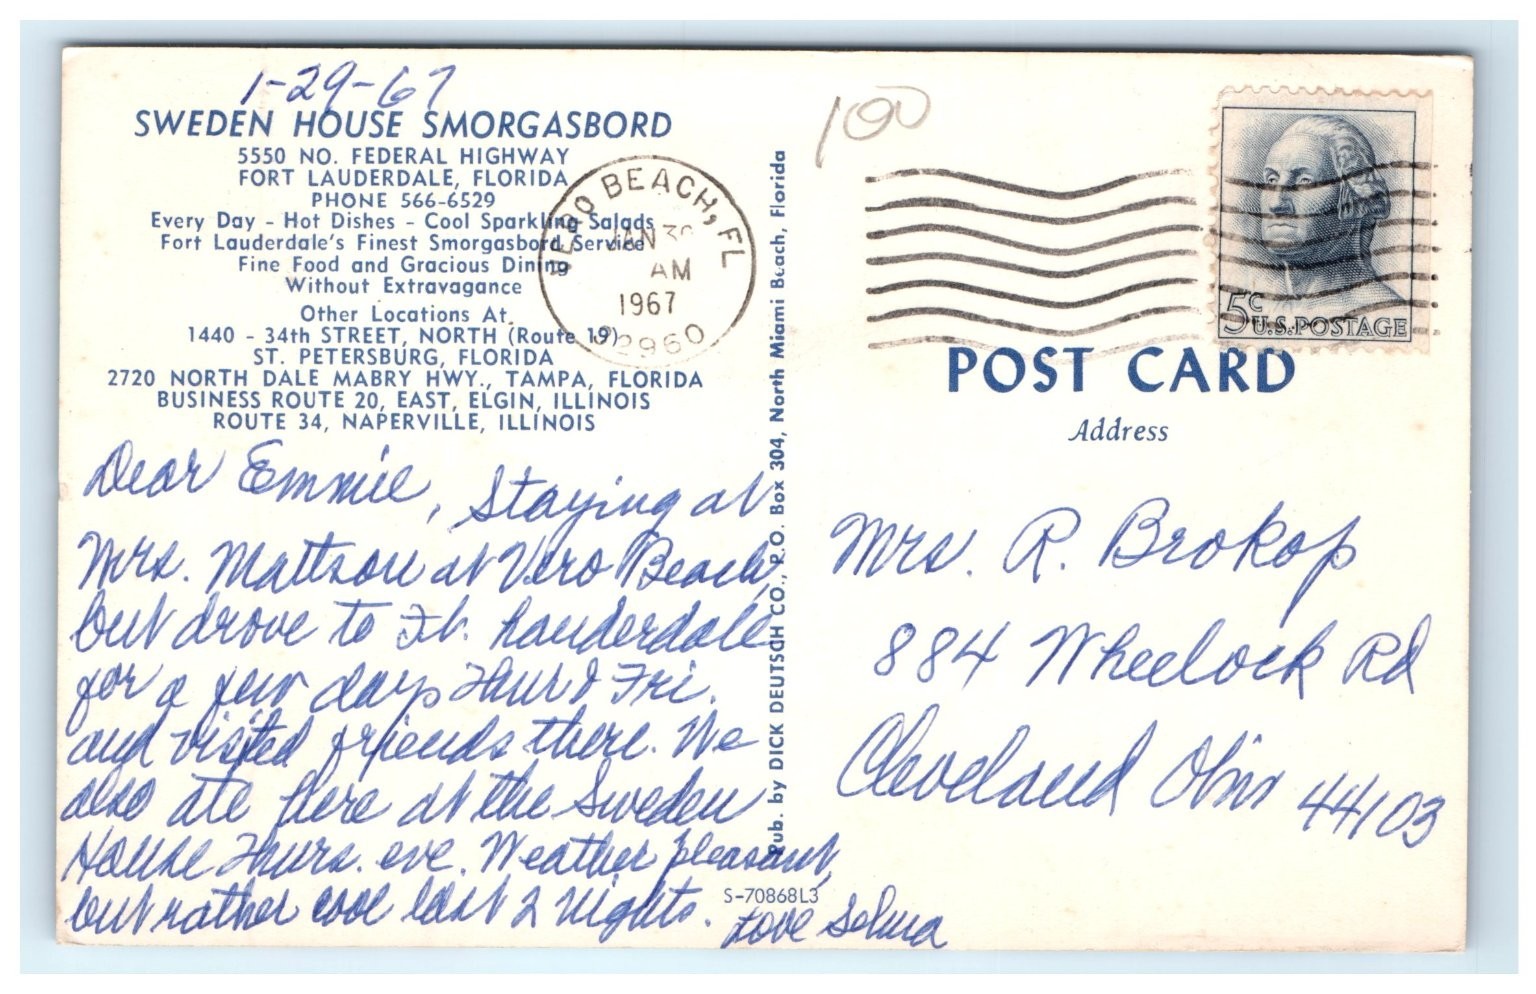 1-29-67
SWEDEN HOUSE SMORGASBORD
5550 NO. FEDERAL HIGHWAY
FORT LAUDERDALE, FLORIDA
PHONE 566-6529
Every Day - Hot Dishes - Cool Sparkling Salads
Fort Lauderdale's Finest Smorgasbord Service
Fine Food and Gracious Dining
Without Extravagance
Other Locations At
1440 - 34th STREET, NORTH (Route 19)
ST. PETERSBURG, FLORIDA
2720 NORTH DALE MABRY HWY., TAMPA, FLORIDA
BUSINESS ROUTE 20, EAST, ELGIN, ILLINOIS
ROUTE 34, NAPERVILLE, ILLINOIS
Dear Emmie, Staying at
Mrs. Mattson at Vero Beach,
but drove to Ft. Lauderdale
for a few days Thur & Fri.
and visited friends there. We
also ate here at the Sweden
House Thurs. eve. Weather pleasant,
but rather cool last 2 nights.
Love Selma
S-70868L3
Pub. by DICK DEUTSCH CO., P.O. Box 304, North Miami Beach, Florida
VERO BEACH, FL
JAN 30
AM
1967
32960
100
5c
U.S. POSTAGE
POST CARD
Address
Mrs. R. Brokop
884 Wheelock Rd
Cleveland Ohio 44103